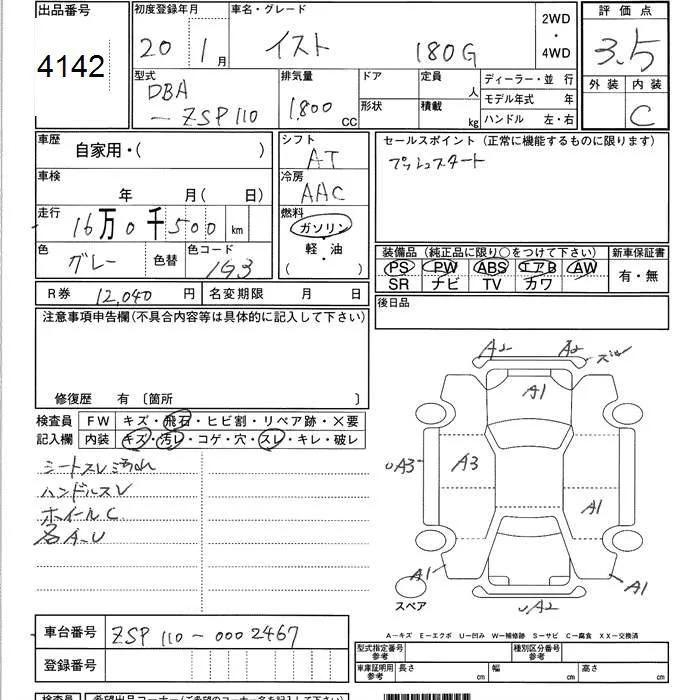 出品番号
4142
初度登録年月
20 1月
車名・グレード
イスト 180G
2WD
・
4WD
評価点
3.5
外装 内装
C
型式
DBA
-ZSP110
排気量
1,800 cc
ドア
形状
定員 人
積載 kg
ディーラー・並 行
モデル年式 年
ハンドル 左・右
車歴
自家用・( )
車検
年 月( 日)
走行
16万0千500 km
色
グレー
色替
色コード
1G3
シフト
AT
冷房
AAC
燃料
ガソリン
・
軽・油
( )
セールスポイント(正常に機能するものに限ります)
プッシュスタート
装備品(純正品に限り○をつけて下さい)
PS PW ABS エアB AW
SR ナビ TV カワ
新車保証書
有・無
R券 12,040 円
名変期限 月 日
後日品
注意事項申告欄(不具合内容等は具体的に記入して下さい)
修復歴 有〔箇所 〕
検査員
記入欄
FW キズ・飛石・ヒビ割・リペア跡・×要
内装 キズ・汚レ・コゲ・穴・スレ・キレ・破レ
シートスレ汚れ
ハンドルスレ
ホイールC
各A-U
A2 A2
A1
UA3 A3
A1
A1 A1
UA2
スペア
A-キズ E-エクボ U-凹み W-補修跡 S-サビ C-腐食 XX-交換済
車台番号
ZSP110-0002467
登録番号
型式指定番号
参考
種別区分番号
参考
車庫証明用
参考
長さ cm 幅 cm 高さ cm
検査員
希望出品コーナー(ご希望のコーナー名を記入下さい)